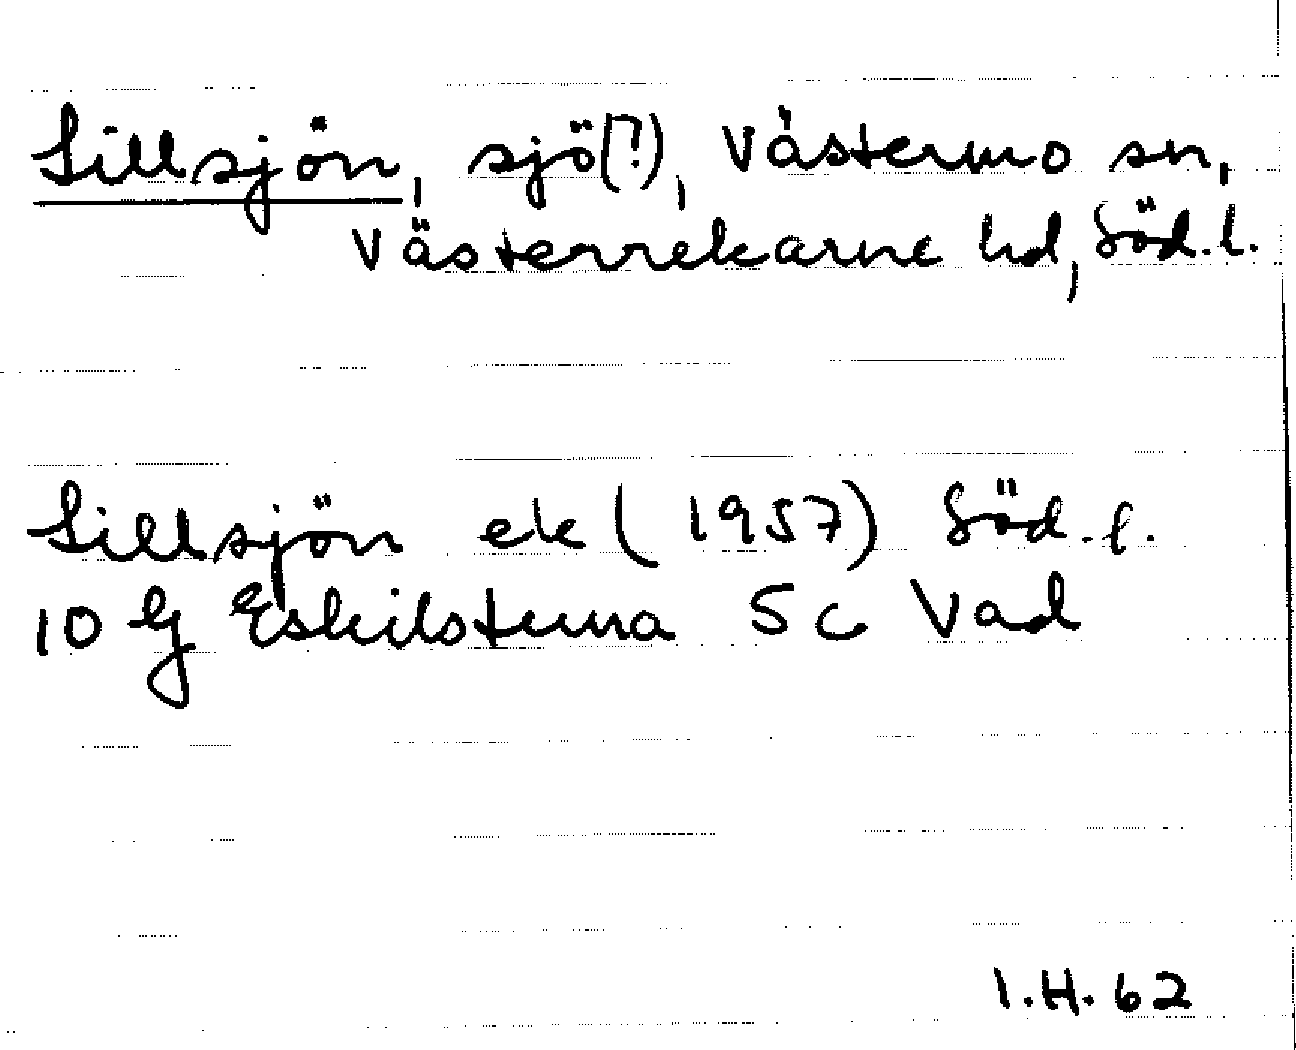 Sillsjön, sjö(?), Västermo sn,
Västerrekarne hd, Söd.l.
Sillsjön ek (1957) Söd.l.
10 G Eskilstuna 5c Vad
I.H. 62